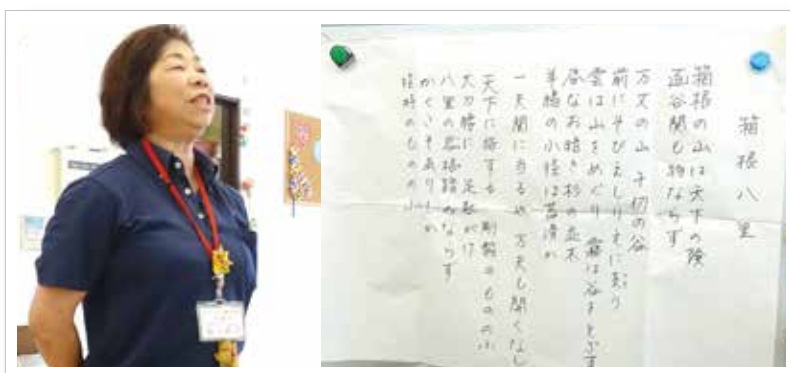 箱根八里
箱根の山は天下の険
函谷関も物ならず
万丈の山 千仞の谷
前にそびえしりえに支う
雲は山をめぐり 霧は谷をとざす
昼なお暗き杉の並木
羊腸の小径は苔滑か
一夫関に当るや 万夫も開くなし
天下に旅する 剛毅のもののふ
大刀腰に 足駄がけ
八里の岩根踏みならす
かくこそありしか
往時のもののふ